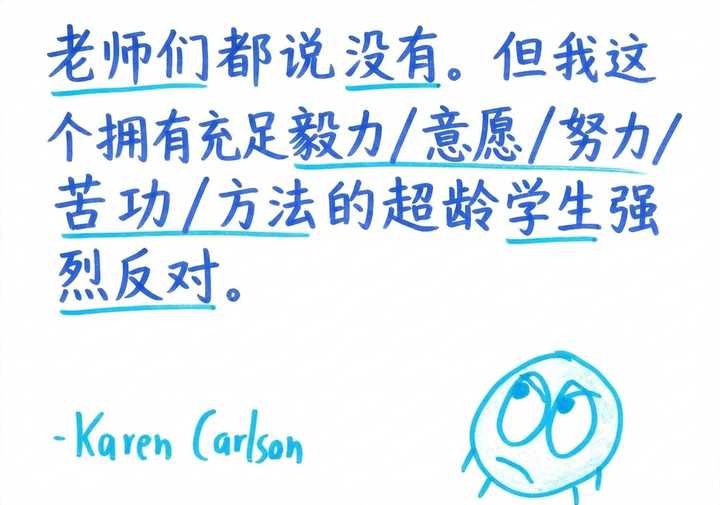 老师们都说没有。但我这
个拥有充足毅力/意愿/努力/
苦功/方法的超龄学生强
烈反对。
-Karen Carlson